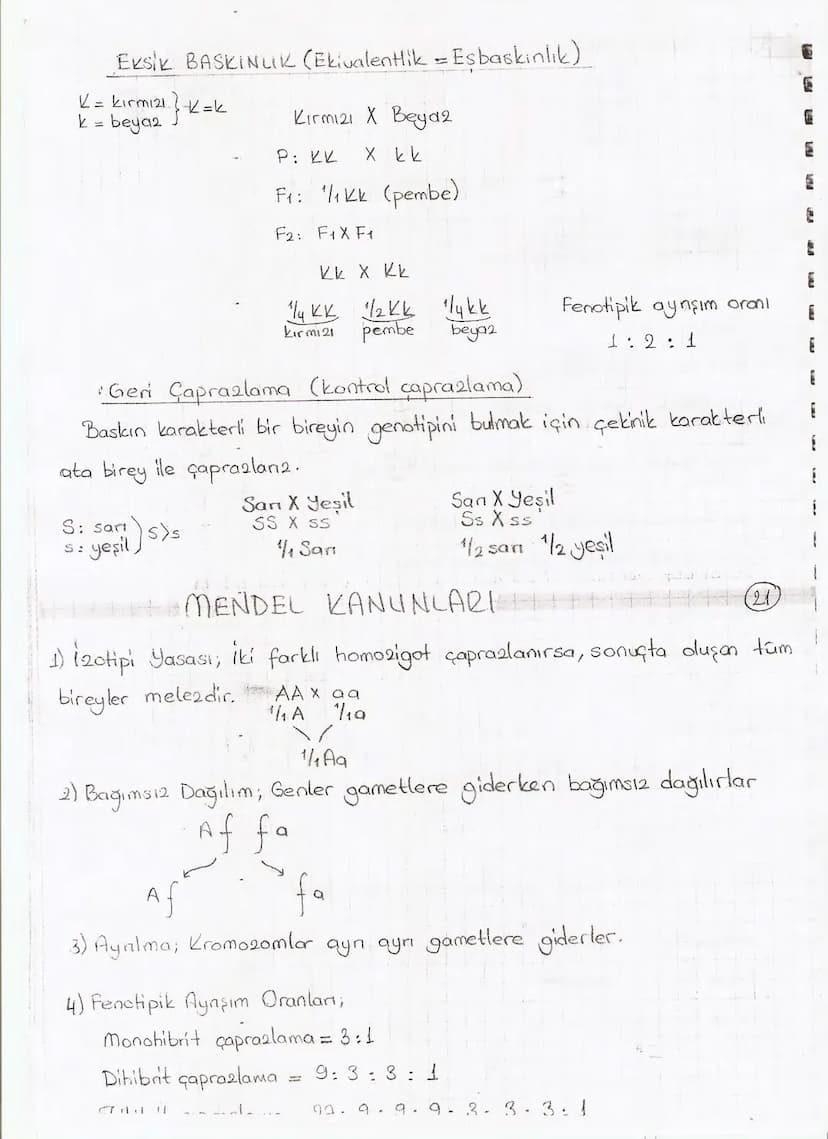 EKSİK BASKINLIK (Ekivalentlik = Eşbaskınlık)
K = kırmızı } K=k
k = beyaz
Kırmızı X Beyaz
P: KK X kk
F1: 1/1 Kk (pembe)
F2: F1 X F1
Kk X Kk
1/4 KK 1/2 Kk 1/4 kk
kırmızı pembe beyaz
Fenotipik ayrışım oranı
1 : 2 : 1
Geri Çaprazlama (kontrol çaprazlama)
Baskın karakterli bir bireyin genotipini bulmak için çekinik karakterli
ata birey ile çaprazlanz.
S: sarı ) S>s
s: yeşil
Sarı X Yeşil
SS X ss
1/1 Sarı
Sarı X Yeşil
Ss X ss
1/2 sarı 1/2 yeşil
MENDEL KANUNLARI
21
1) İzotipi Yasası; İki farklı homozigot çaprazlanırsa, sonuçta oluşan tüm
bireyler melezdir. AA X aa
1/1 A 1/1 a
1/1 Aa
2) Bağımsız Dağılım; Genler gametlere giderken bağımsız dağılırlar
A a
A a
3) Ayrılma; Kromozomlar ayrı ayrı gametlere giderler.
4) Fenotipik Ayrışım Oranları;
Monohibrit çaprazlama = 3:1
Dihibrit çaprazlama = 9: 3 : 3 : 1